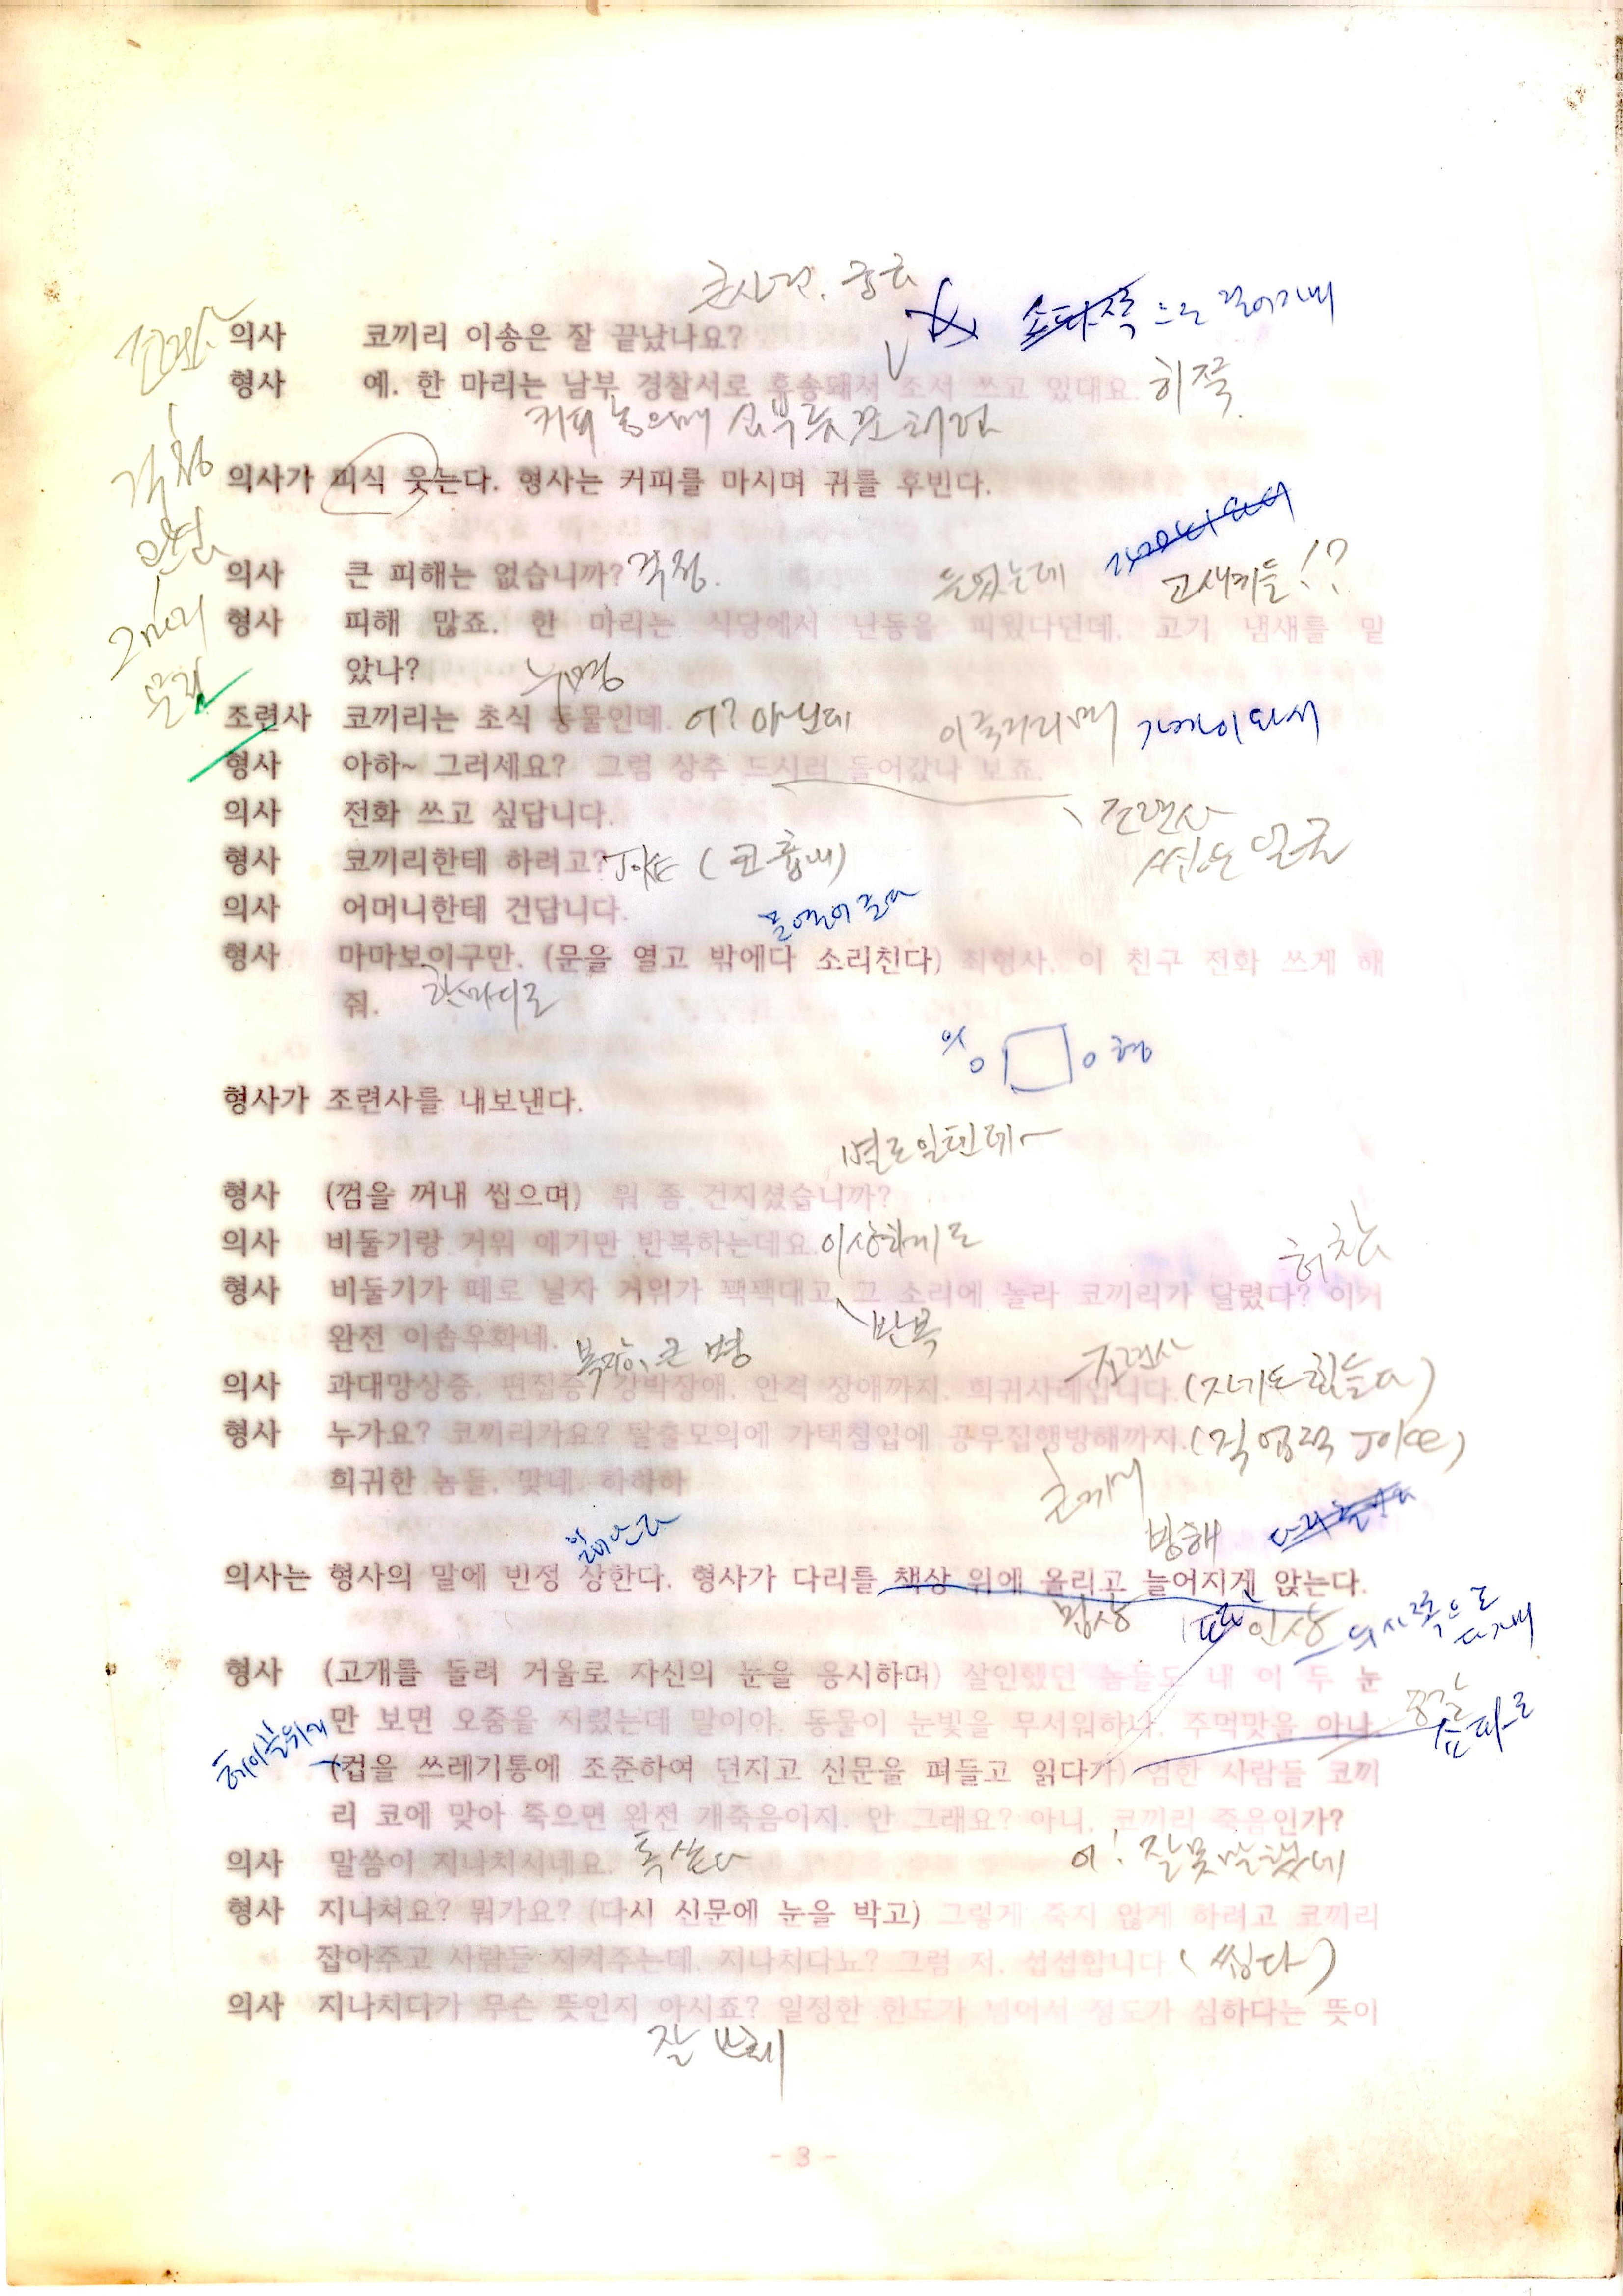 큰사건. 궁금
소파쪽으로 걸어가며
의사 코끼리 이송은 잘 끝났나요?
형사 예. 한 마리는 남부 경찰서로 후송돼서 조서 쓰고 있대요. 히죽.
의사가 피식 웃는다. 형사는 커피를 마시며 귀를 후빈다.
의사 큰 피해는 없습니까? 걱정.
들었는데 고새끼들!?
형사 피해 많죠. 한 마리는 식당에서 난동을 피웠다던데. 고기 냄새를 맡
았나?
조련사 코끼리는 초식 동물인데. 어? 아닌데
가까이 와서
형사 아하~ 그러세요? 그럼 상추 드시러 들어갔나 보죠.
의사 전화 쓰고 싶답니다.
조련사
씹는 얼굴
형사 코끼리한테 하려고? JOKE (코 흉내)
의사 어머니한테 건답니다.
문 열어준다
형사 마마보이구만. (문을 열고 밖에다 소리친다) 최형사, 이 친구 전화 쓰게 해
줘. 한마디로
의 형
형사가 조련사를 내보낸다.
별로일텐데~
형사 (껌을 꺼내 씹으며) 뭐 좀 건지셨습니까?
의사 비둘기랑 거위 얘기만 반복하는데요. 이상하게도
형사 비둘기가 떼로 날자 거위가 꽥꽥대고 그 소리에 놀라 코끼리가 달렸다? 이거
반복
완전 이솝우화네.
조련사
의사 과대망상증, 편집증, 강박장애, 안걱 장애까지. 희귀사례입니다. (자기도 힘들다)
형사 누가요? 코끼리가요? 탈출모의에 가택침입에 공무집행방해까지. (직업적 JOKE)
희귀한 놈들, 맞네. 하하하
방해
일어난다
의사는 형사의 말에 빈정 상한다. 형사가 다리를 책상 위에 올리고 늘어지게 앉는다.
인상 의사쪽으로
다가가며
형사 (고개를 돌려 거울로 자신의 눈을 응시하며) 살인했던 놈들도 내 이 두 눈
만 보면 오줌을 지렸는데 말이야. 동물이 눈빛을 무서워하나, 주먹맛을 아나.
소파로
테이블위에
(컵을 쓰레기통에 조준하여 던지고 신문을 펴들고 읽다가) 멈한 사람들 코끼
리 코에 맞아 죽으면 완전 개죽음이지. 안 그래요? 아니, 코끼리 죽음인가?
의사 말씀이 지나치시네요. 톡 쏜다
어! 잘못말했네
형사 지나쳐요? 뭐가요? (다시 신문에 눈을 박고) 그렇게 죽지 않게 하려고 코끼리
잡아주고 사람들 지켜주는데. 지나치다뇨? 그럼 저, 섭섭합니다. (씹다)
의사 지나치다가 무슨 뜻인지 아시죠? 일정한 한도가 넘어서 정도가 심하다는 뜻이
- 3 -